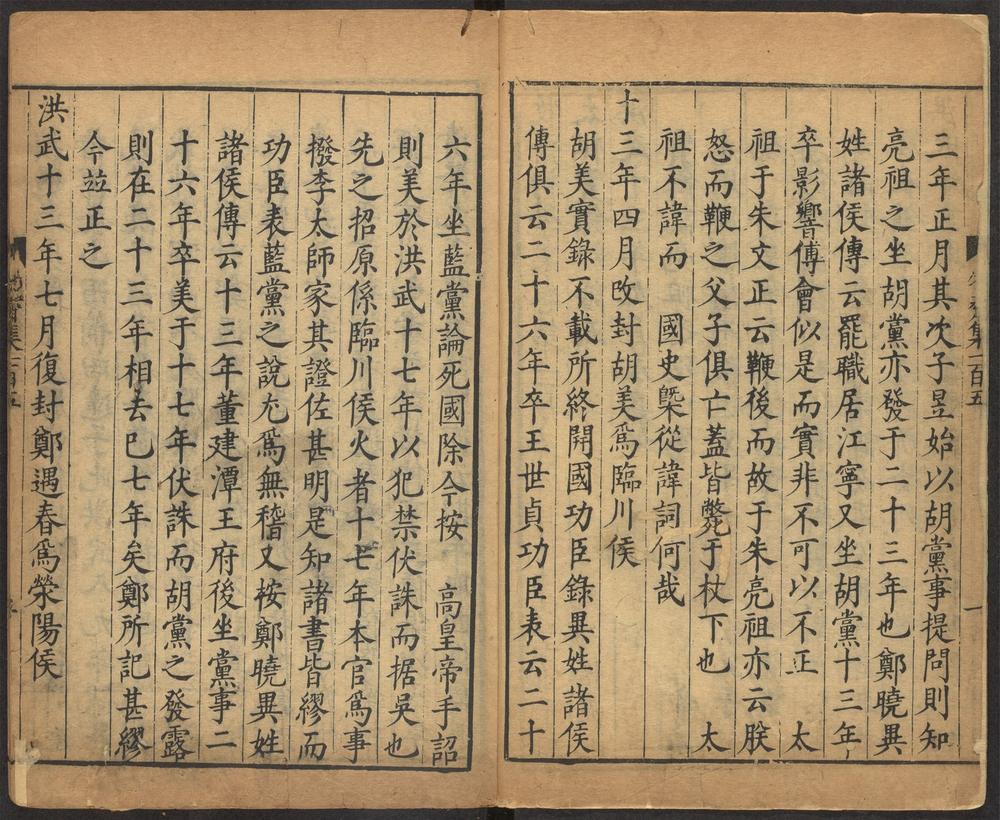 三年正月其次子昱始以胡黨事提問則知
亮祖之坐胡黨亦發于二十三年也鄭曉異
姓諸侯傳云罷職居江寧又坐胡黨十三年
卒影響傅會似是而實非不可以不正　太
祖于朱文正云鞭後而故于朱亮祖亦云朕
怒而鞭之父子俱亡蓋皆斃于杖下也　太
祖不諱而　國史槩從諱詞何哉
十三年四月改封胡美爲臨川侯
胡美實錄不載所終開國功臣錄異姓諸侯
傳俱云二十六年卒王世貞功臣表云二十
六年坐藍黨論死國除今按　高皇帝手詔
則美於洪武十七年以犯禁伏誅而据吳也
先之招原係臨川侯火者十七年本官爲事
撥李太師家其證佐甚明是知諸書皆繆而
功臣表藍黨之說尤爲無稽又按鄭曉異姓
諸侯傳云十三年董建潭王府後坐黨事二
十六年卒美于十七年伏誅而胡黨之發露
則在二十三年相去巳七年矣鄭所記甚繆
今竝正之
洪武十三年七月復封鄭遇春爲滎陽侯